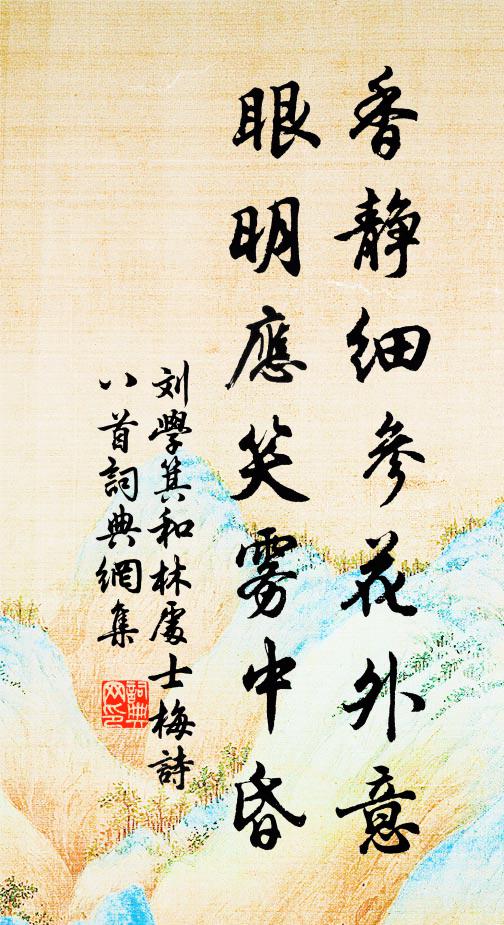 香靜細參花外意
眼明應笑雾中昏
刘學箕和林處士梅詩
八首詞典網集
詞典